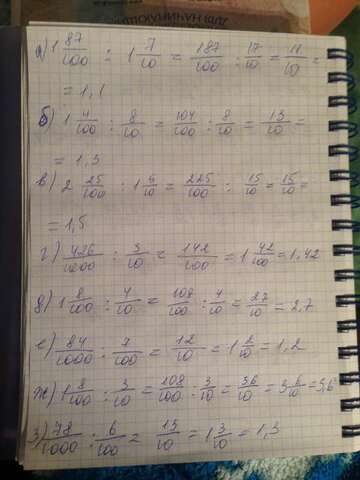 а) 1 87/100 : 1 7/10 = 187/100 : 17/10 = 11/10 =
= 1,1
б) 1 4/100 : 8/10 = 104/100 : 8/10 = 13/10 =
= 1,3
в) 2 25/100 : 1 5/10 = 225/100 : 15/10 = 15/10 =
= 1,5
г) 426/1000 : 3/10 = 142/100 = 1 42/100 = 1,42
д) 1 8/100 : 4/10 = 108/100 : 4/10 = 27/10 = 2,7
е) 84/1000 : 7/100 = 12/10 = 1 2/10 = 1,2
ж) 1 8/100 : 3/10 = 108/100 : 3/10 = 36/10 = 3 6/10 = 3,6
з) 78/1000 : 6/100 = 13/10 = 1 3/10 = 1,3